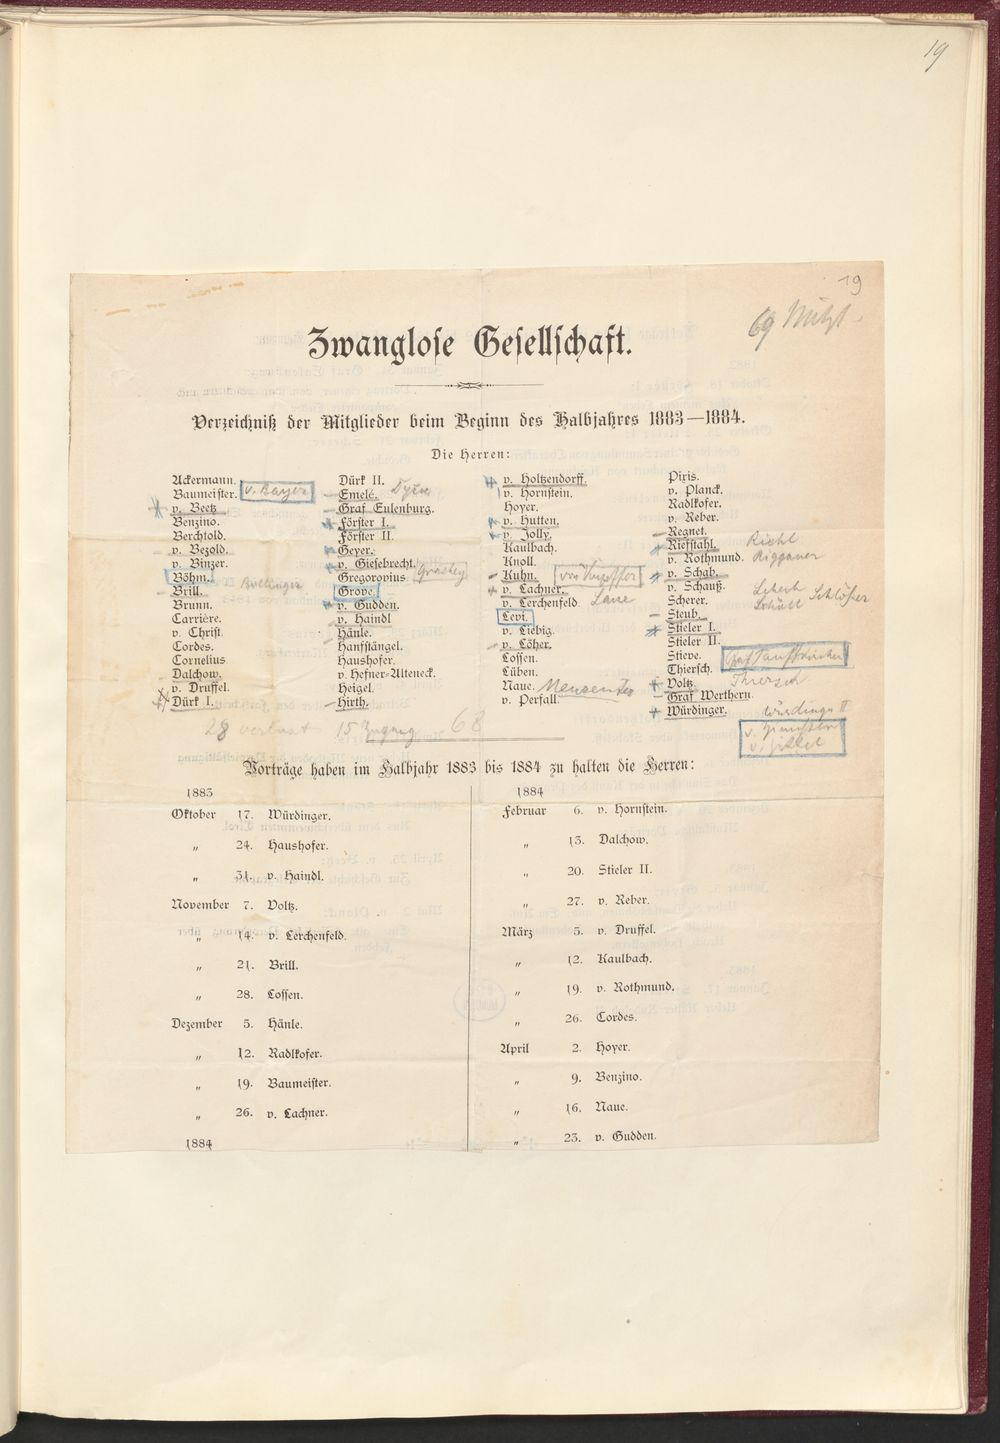 19
19
69 Mitgl.
Zwanglose Gesellschaft.
Verzeichniß der Mitglieder beim Beginn des Halbjahres 1883—1884.
Die Herren:
Ackermann.
Baumeister. v. Bayer
v. Beetz
Benzino.
Berchtold.
v. Bezold.
v. Binzer.
Böhm.
Brill. Bollinger
Brunn.
Carrière.
v. Christ.
Cordes.
Cornelius
Dalchow.
v. Druffel.
Dürk I.
Dürk II.
Emelé. Dyck
Graf Eulenburg.
Förster I.
Förster II.
Geyer.
v. Giesebrecht.
Gregorovius Grashey
Grove.
v. Gudden.
v. Haindl
Hänle.
Hanfstängel.
Haushofer.
v. Hefner-Alteneck.
Heigel.
Hirth.
v. Holtzendorff.
v. Hornstein.
Hoyer.
v. Hutten.
v. Jolly.
Kaulbach.
Knoll.
Kuhn. von Kupffer
v. Lachner.
v. Lerchenfeld
Levi.
v. Liebig.
v. Löher.
Lossen.
Lüben.
Naue.
v. Perfall.
Pixis.
v. Planck.
Radlkofer.
v. Reber.
Regnet.
Riefstahl. Riehl
v. Rothmund. Riggauer
v. Schab.
v. Schauß.
Scherer.
Steub.
Stieler I.
Stieler II.
Stieve.
Thiersch. Graf Tauffkirchen
Voltz. Thiersch
Graf Werthern.
Würdinger. Würdinger II
v. Zittel
28 verlust 15 Zugang 68
Vorträge haben im Halbjahr 1883 bis 1884 zu halten die Herren:
1883
Oktober 17. Würdinger.
„ 24. Haushofer.
„ 31. v. Haindl.
November 7. Voltz.
„ 14. v. Lerchenfeld.
„ 21. Brill.
„ 28. Lossen.
Dezember 5. Hänle.
„ 12. Radlkofer.
„ 19. Baumeister.
„ 26. v. Lachner.
1884
1884
Februar 6. v. Hornstein.
„ 13. Dalchow.
„ 20. Stieler II.
„ 27. v. Reber.
März 5. v. Druffel.
„ 12. Kaulbach.
„ 19. v. Rothmund.
„ 26. Cordes.
April 2. Hoyer.
„ 9. Benzino.
„ 16. Naue.
„ 23. v. Gudden.